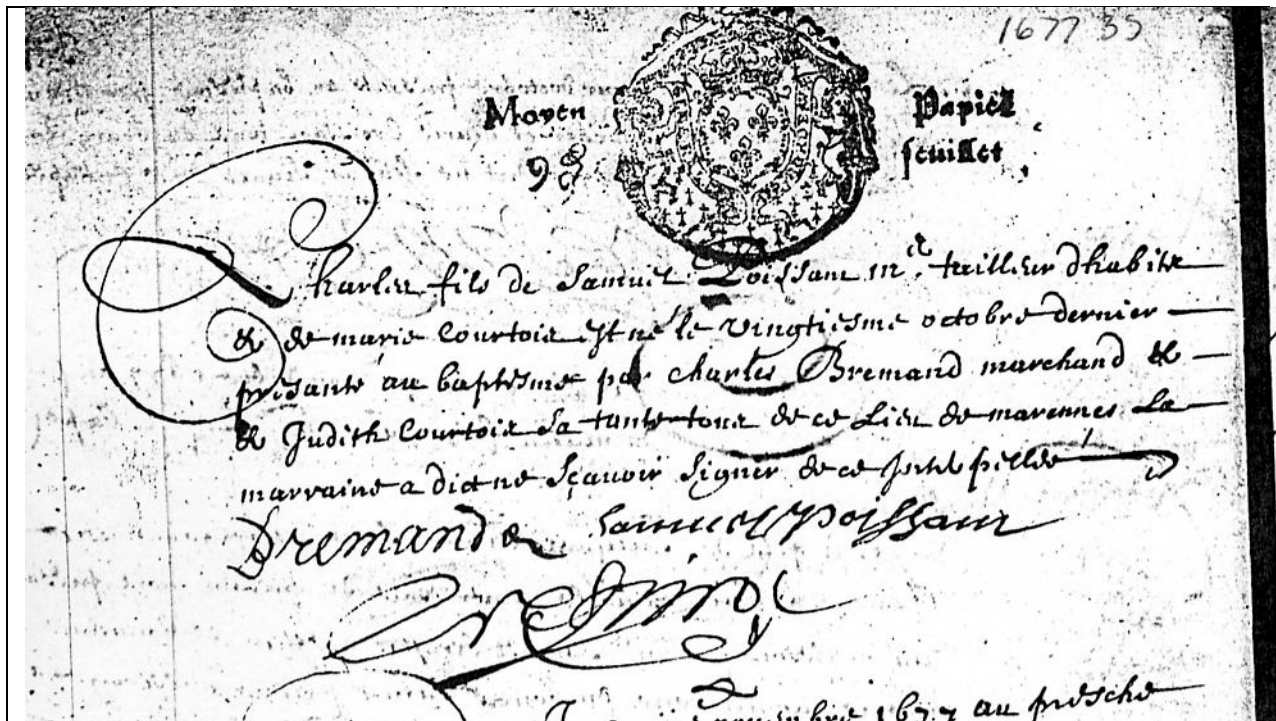 1677 35
Moyen Papier
9 d feuillet
Charles fils de Samuel Poissant mr. tailleur dhabits
& de marie Courtois est né le vingtiesme octobre dernier
présanté au baptesme par charles Bremand marchand &
& Judith Courtois sa tante tous de ce Lieu de marennes La
marraine a dict ne sçauoir signer de ce
Bremand Samuel poissant
novembre 1677 au presche